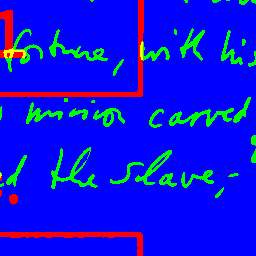 fortune, with his
minion carved
the slave,-